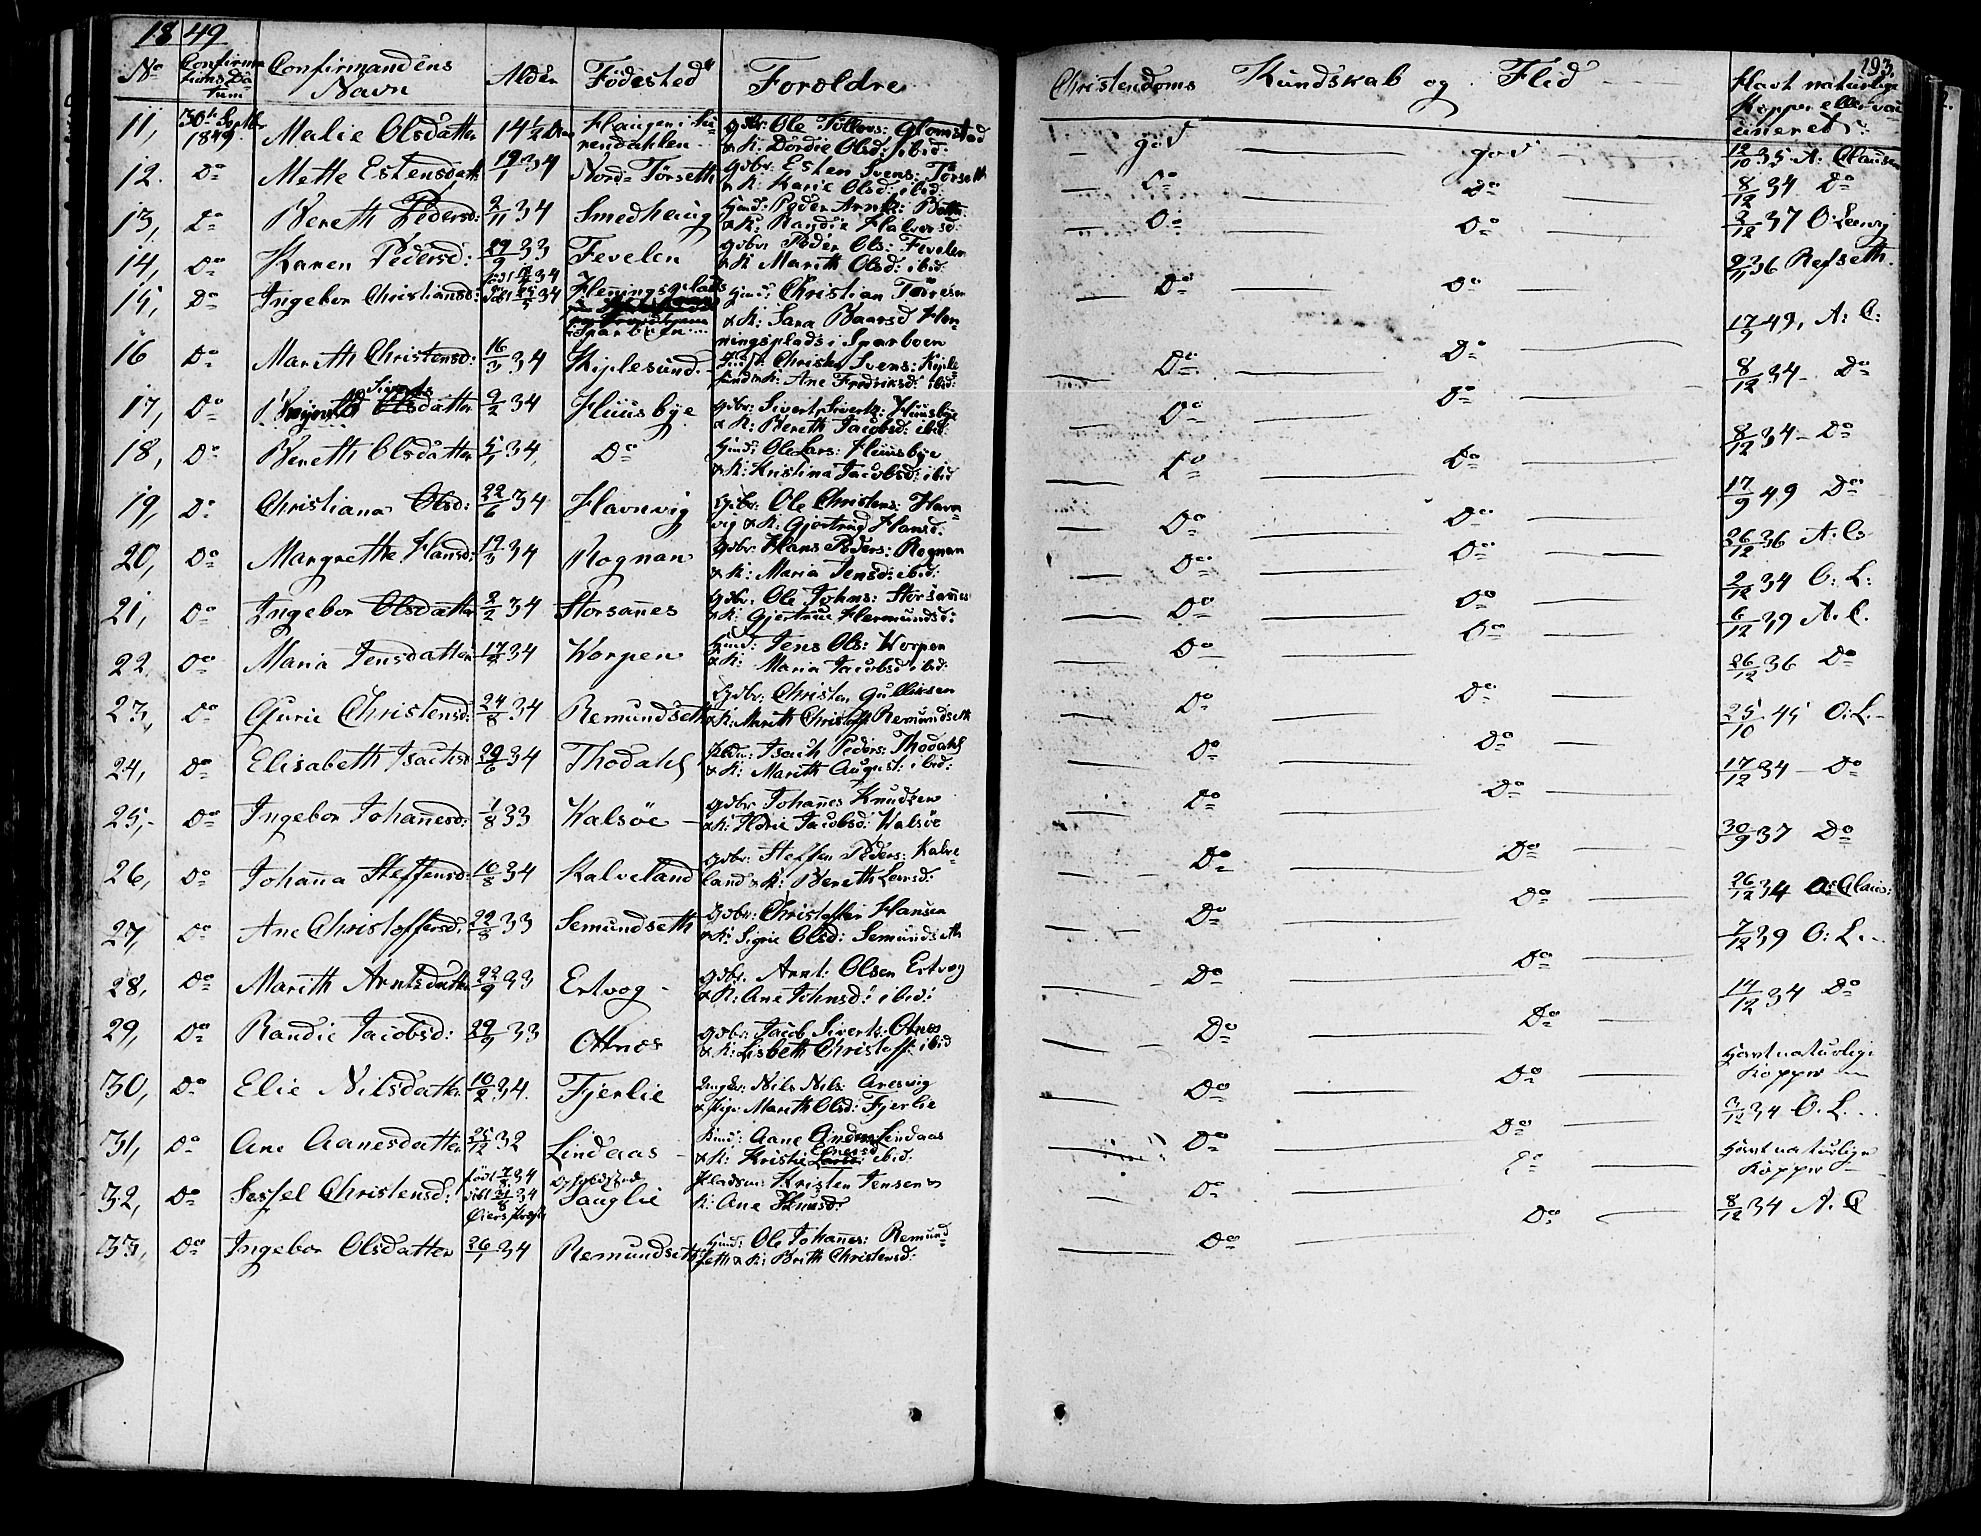 1849
193.
No Confirmationsdatum Confirmandens Navn Alder Fødested Forældre Christendoms Kundskab og Flid Havt naturlige Kopper eller vaccineret
11, 30te Septbr 1849 Malie Olsdatter 14 1/2 Haugen i Surendahlen Gbr: Ole Tollevs: Glomstad & K: Dordie Olsd: ibid: god god 12/10 35 A: Clausen
12. Do Mette Estensdatt: 19/1 34 Nord-Törseth Gdbr: Esten Svens: Törseth & K: Karie Olsd: ibid: Do Do 8/12 34 Do
13, Do Bereth Pedersd: 2/11 34 Smedhaug Huusm: Peder Arnts: & K: Randie Halvorsd: Do Do 2/12 37 O: Leervig
14, Do Karen Pedersd: 29/9 33 Fevelen Gdbr Peder Ols: Fevelen & K Marith Olsd: ibid: Do Do 23/11 36 Refseth.
15, Do Ingebor Christiansd: 34 Henningsplads i Sparboen Huusm: Christian Toresen & K: Sara Baarsd Henningsplads i Sparboen Do Do 17/3 49, A: C:
16 Do Marith Christensd: 16/3 34 Kiplesund Christen Svens: Kiplesund & K: Ane Fredriksd: ibid: Do Do 8/12 34 - Do
17, Do Sivertsdatter 2/2 34 Huusbye Gdbr: Sivert Siverts: Huusbye & K: Bereth Jacobsd: ibid: Do Do 8/12 34 - Do
18, Do Bereth Olsdatter 5/1 34, Do Huusm: Ole Lars: Huusbye & K: Kristina Jacobsd: ibid Do Do 17/9 49 Do
19, Do Christiana Olsd: 22/6 34 Havnvig Gdbr: Ole Christens: Havnvig & K: Gjertrud Hansd: Do Do 26/12 36 A: C:
20, Do Margrethe Hansd: 12/3 34 Rognan Gdbr: Hans Peders: Rognan & K: Maria Jensd: ibid: Do Do 2/12 34 O: L:
21, Do Ingebor Olsdatter 2/2 34 Storsanes Gdbr: Ole Johns: Storsanes & K: Gjertrue Hermundsd: Do Do 6/12 39 A. C.
22, Do Maria Jensdatter 17/2 34 Korpen Huusm: Jens Ols: Korpen & K: Maria Jacobsd: ibid: Do Do 26/12 36 Do
23, Do Gurie Christensd: 24/8 34 Remundseth Gdbr: Christen Gulliksen & K: Marith Christoff: Remundseth Do Do 25/10 45 O: L. -
24, Do Elisabeth Isachsd 29/6 34 Thodahl Isach Peders: Thodahl & K: Marith August: ibid: Do Do 17/12 34 - Do
25, - Do Ingebor Johanesd: 1/8 33 Kalsöe - Gdbr: Johanes Knudsen & K: Ildrie Jacobsd: Kalsöe Do Do 30/9 37 Do
26, Do Johana Steffensd: 10/8 34 Kalveland Gdbr: Steffen Peders: Kalveland & K: Bereth Larsd: Do Do 26/12 34 A: Claus:
27, Do Ane Christoffersd: 29/8 33 Semundseth Gdbr: Christoffer Hansen & K: Sigrie Olsd: Semundseth Do Do 7/12 39 O: L. -
28, Do Marith Arntsdatter 22/9 33 Ertvog - Gdbr. Arnt: Olsen Ertvog & K: Ane Johnsd: ibid: Do Do 14/12 34 Do
29, Do Randie Jacobsd: 29/9 33 Ottnæs Gdbr: Jacob Siverts: Otnæs & K: Lisbeth Christoff: ibid Do Do Havt naturlige Kopper
30, Do Elie Nilsdatter 10/2 34. Fjerlie Ungkr: Nils Nils: Aresvig & Pige: Marith Olsd: Fjerlie Do Do 3/12 34 O. L.
31, Do Ane Aanesdatter 25/12 32 Lindaas - Huusm: Aane Anders: Lindaas & K: Kristie ibid: Do Do Havt naturlige Kopper -
32, Do Sessel Christensd: født 34 døbt 34 Sauglie Kristen Jensen & K: Ane Knudsd: Do Do 8/12 34 A. C
33, Do Ingebor Olsdatter 26/1 34 Remundseth Huusm: Ole Johanes: Remundseth & K: Brith Christensd: Do Do